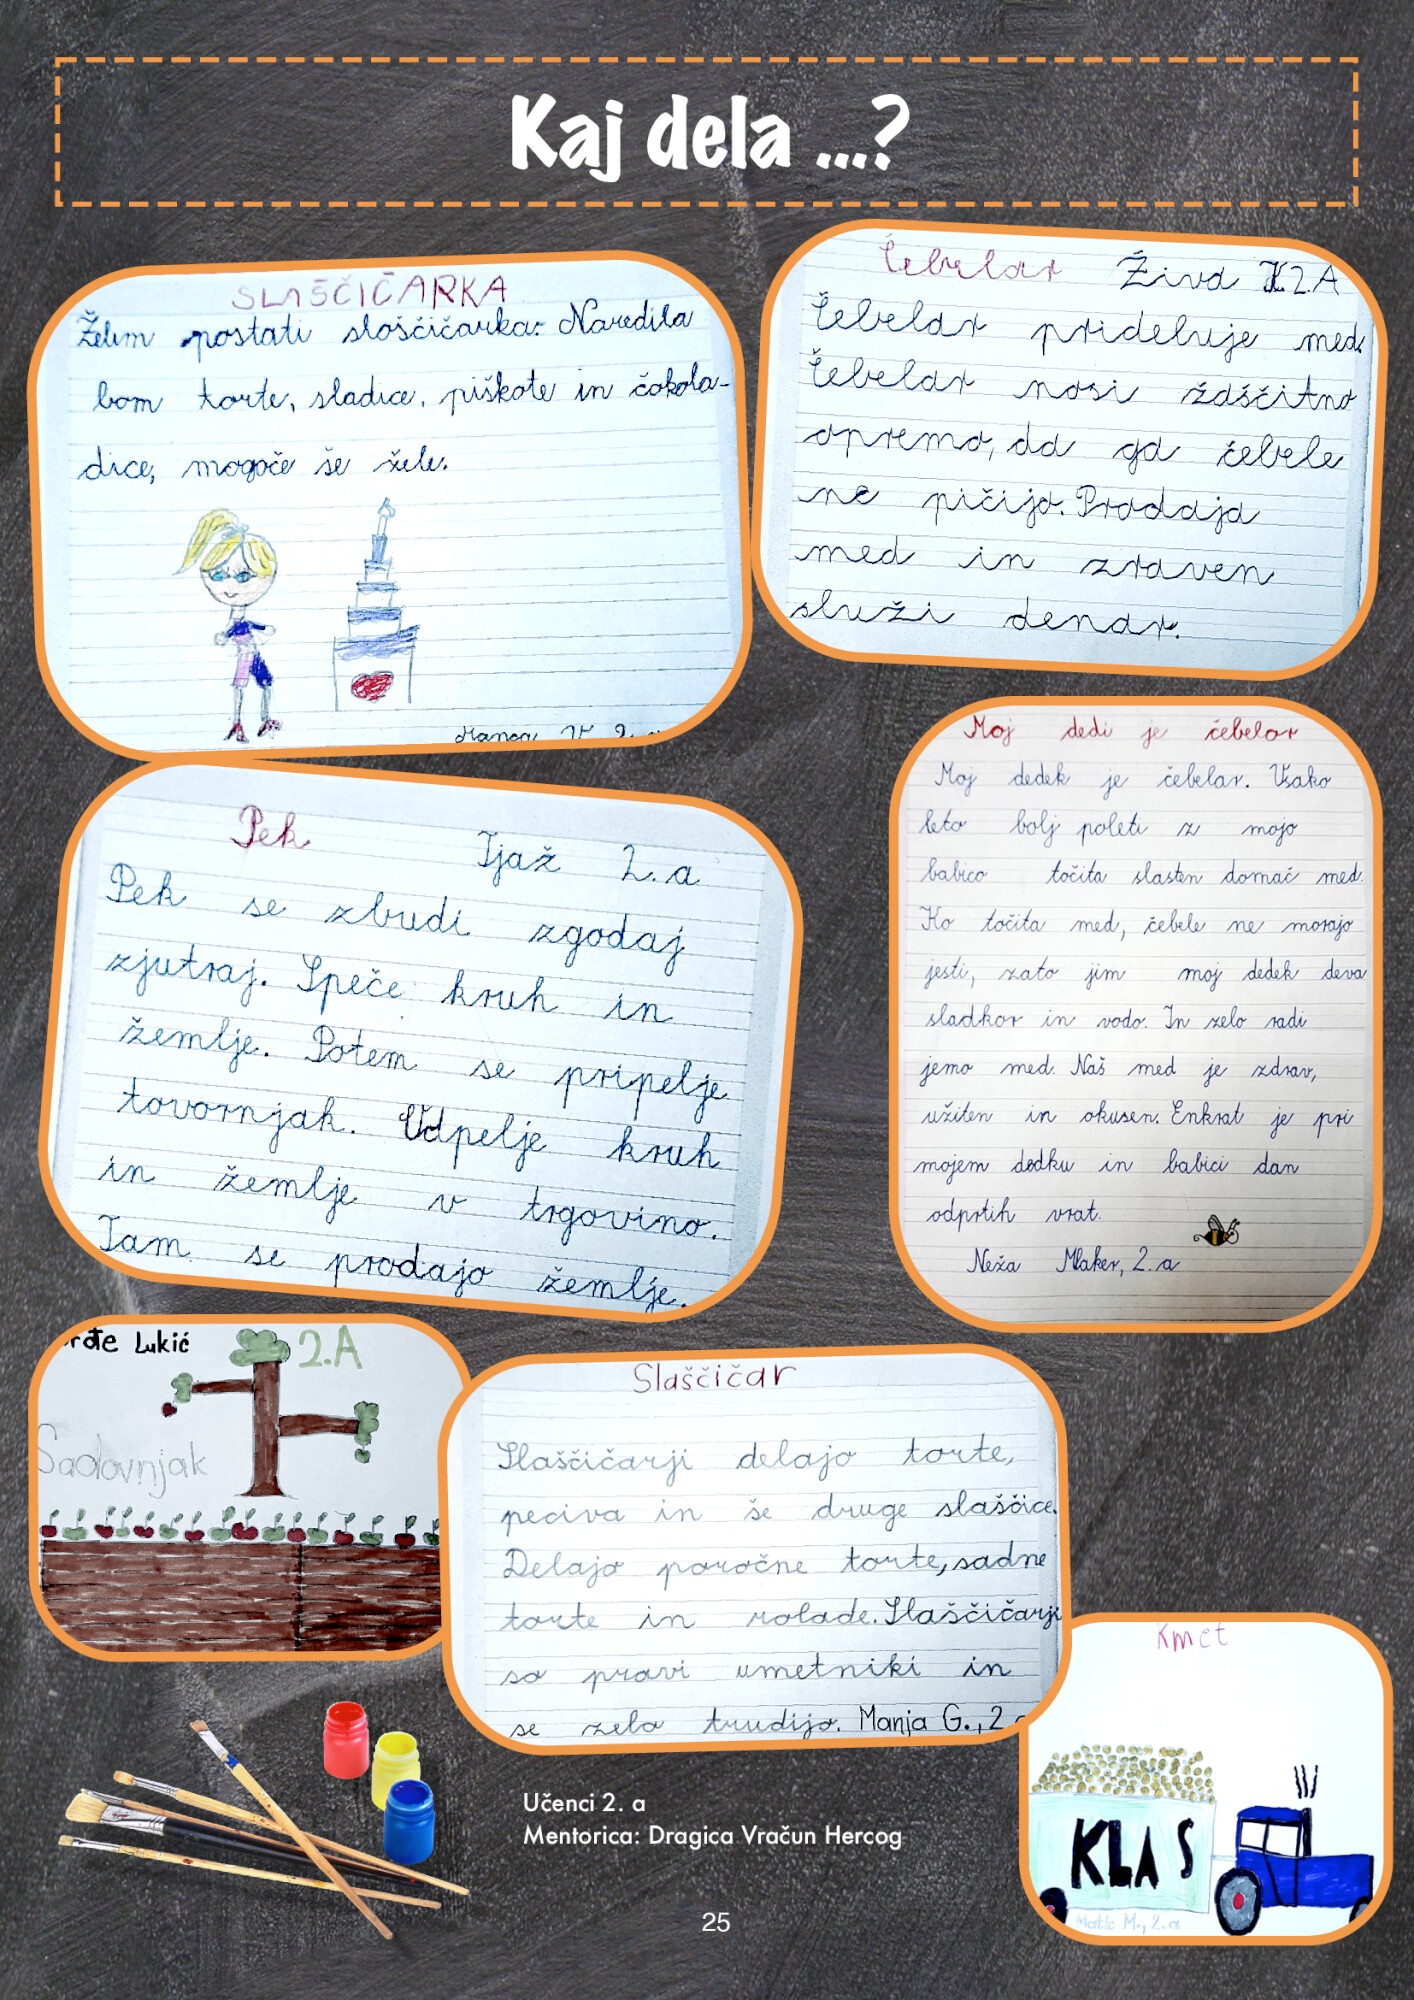 Kaj dela ...?
SLAŠČIČARKA
Želim postati sloščičarka. Naredila
bom torte, sladice, piškote in čokola-
dice, mogoče še žele.
Manca V. 2. a
Čebelar Živa K. 2. A
Čebelar prideluje med.
Čebelar nosi žaščitno
opremo, da ga čebele
ne pičijo. Prodaja
med in zraven
služi denar.
Moj dedi je čebelar
Moj dedek je čebelar. Vsako
leto bolj poleti z mojo
babico točita slasten domač med.
Ko točita med, čebele ne morajo
jesti, zato jim moj dedek deva
sladkor in vodo. In zelo radi
jemo med. Naš med je zdrav,
užiten in okusen. Enkrat je pri
mojem dedku in babici dan
odprtih vrat.
Neža Mlaker, 2. a
Pek
Tjaž 2. a
Pek se zbudi zgodaj
zjutraj. Speče kruh in
žemlje. Potem se pripelje
tovornjak. Odpelje kruh
in žemlje v trgovino.
Tam se prodajo žemlje.
Lukić
2.A
Sadovnjak
Slaščičar
Slaščičarji delajo torte,
peciva in še druge slaščice.
Delajo poročne torte, sadne
torte in rolade. Slaščičarji
so pravi umetniki in
se zelo trudijo. Manja G., 2. a
Kmet
KLAS
M., 2. a
Učenci 2. a
Mentorica: Dragica Vračun Hercog
25